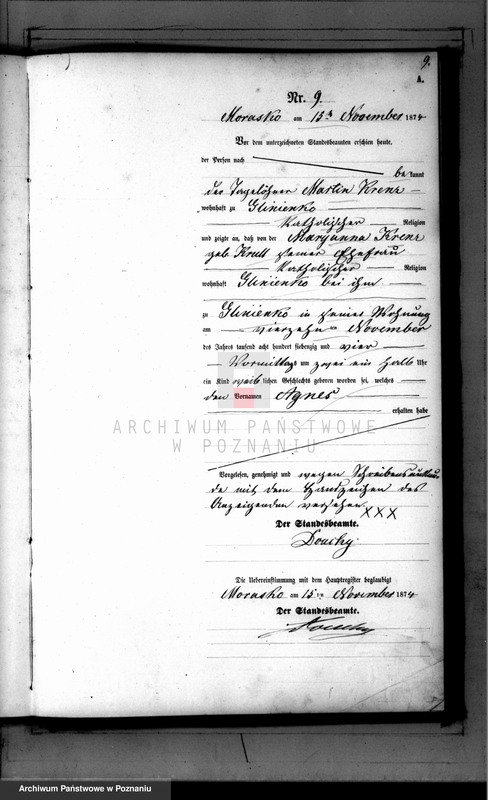 9.
A.
Nr. 9.
Morasko am 15ten November 1874
Vor dem unterzeichneten Standesbeamten erschien heute,
der Person nach
bekannt
der Tagelöhner Martin Krenz
wohnhaft zu Glinienko
Katholischer Religion
und zeigte an, daß von der Maryanna Krenz
geb Krull seiner Ehefrau
Katholischer Religion
wohnhaft Glinienko bei ihm
zu Glinienko in seiner Wohnung
am vierzehnten November
des Jahres tausend acht hundert siebenzig und vier
Vormittags um zwei ein halb Uhr
ein Kind weiblichen Geschlechts geboren worden sei, welches
den Vornamen Agnes
erhalten habe
ARCHIWUM PAŃSTWOWE
W POZNANIU
Vorgelesen, genehmigt und wegen
de mit dem Handzeichen des
Anzeigenden versehen XXX
Der Standesbeamte.
Die Uebereinstimmung mit dem Hauptregister beglaubigt
Morasko am 15ten November 1874
Der Standesbeamte.
Archiwum Państwowe w Poznaniu